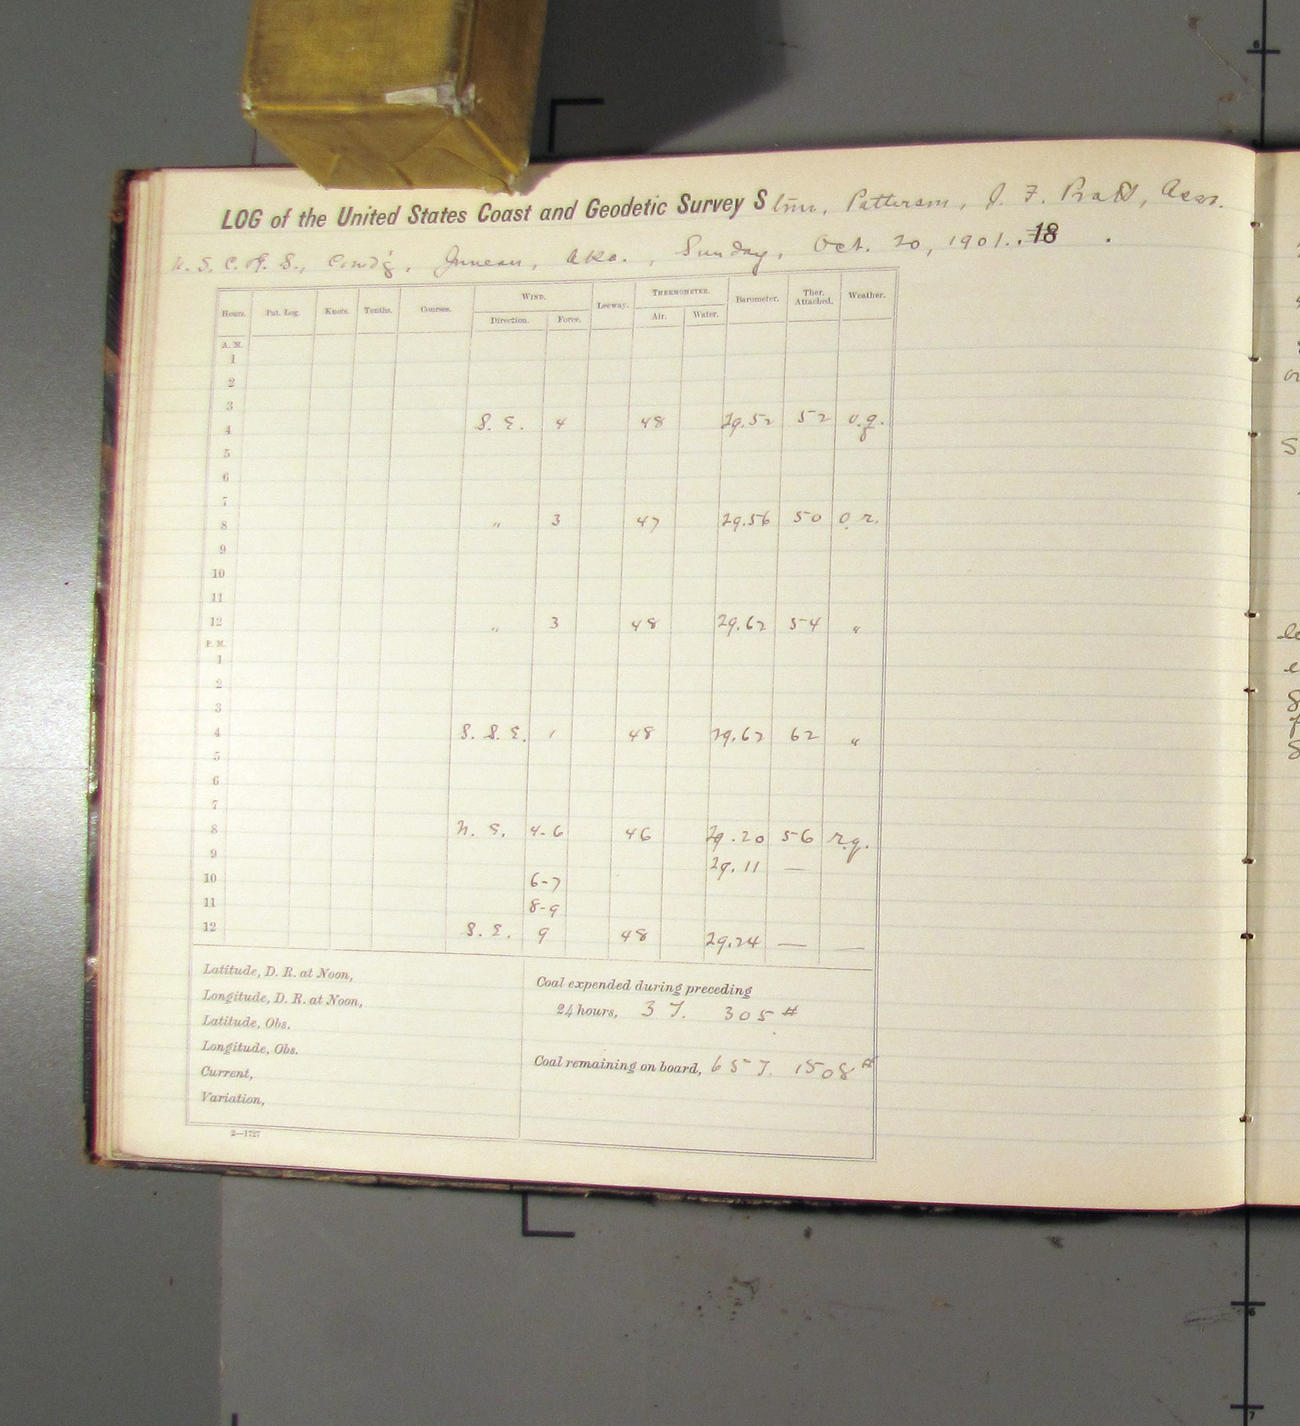 LOG of the United States Coast and Geodetic Survey Stmr. Patterson, J. F. Pratt, Asst.
U. S. C. & G. S., Comd'g, Juneau, Aka., Sunday, Oct. 20, 1901. , 18 .
Hours. Pat. Log. Knots. Tenths. Courses. WIND. Leeway. THERMOMETER. Barometer. Ther. Attached. Weather.
Direction. Force. Air. Water.
A. M.
1
2
3
4 S. E. 4 48 29.52 52 o.q.
5
6
7
8 " 3 47 29.56 50 o. r.
9
10
11
12 " 3 48 29.62 54 "
P. M.
1
2
3
4 S. S. E. 1 48 29.62 62 "
5
6
7
8 N. E. 4-6 46 29.20 56 r.q.
9 29.11 —
10 6-7
11 8-9
12 S. E. 9 48 29.24 — —
Latitude, D. R. at Noon,
Longitude, D. R. at Noon,
Latitude, Obs.
Longitude, Obs.
Current,
Variation,
Coal expended during preceding
24 hours, 3 T. 305 #
Coal remaining on board, 65 T. 1508 #
2—1727
6
6
7